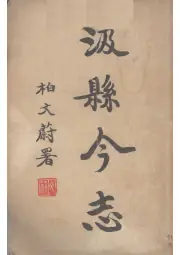 汲縣今志
柏文蔚署